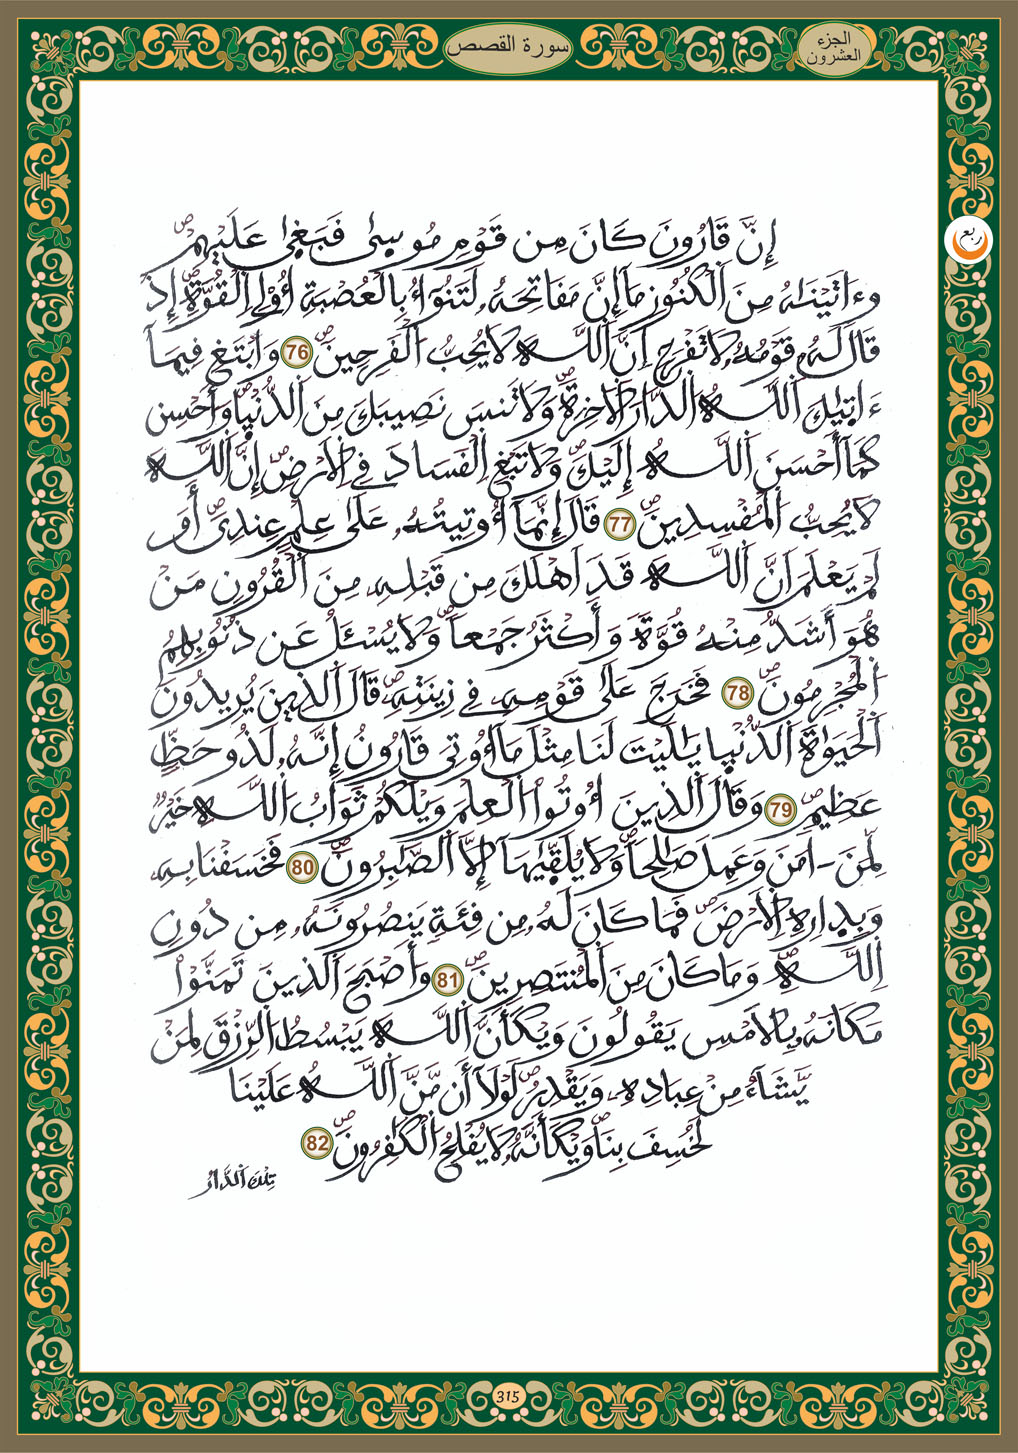 الجزء
العشرون
سورة القصص
ربع
إِنَّ قَارُونَ كَانَ مِن قَوْمِ مُوسِىٰ فَبَغِىٰ عَلَيْهِمْ ص
وَءَاتَيْنَٰهُ مِنَ اَ۬لْكُنُوزِ مَا إِنَّ مَفَاتِحَهُۥ لَتَنُوٓأُ بِالْعُصْبَةِ أُوْلِے اِ۬لْقُوَّةِ ص إِذْ
قَالَ لَهُۥ قَوْمُهُۥ لَا تَفْرَحِ اِنَّ اَ۬للَّهَ لَا يُحِبُّ اُ۬لْفَرِحِينَ ص 76 وَابْتَغِ فِيمَآ
ءَاتِيٰكَ اَ۬للَّهُ اُ۬لدَّارَ اَ۬لَاخِرَةَ ص وَلَا تَنسَ نَصِيبَكَ مِنَ اَ۬لدُّنْيِا ص وَأَحْسِن
كَمَآ أَحْسَنَ اَ۬للَّهُ إِلَيْكَ ص وَلَا تَبْغِ اِ۬لْفَسَادَ فِے اِ۬لَارْضِ ص إِنَّ اَ۬للَّهَ
لَا يُحِبُّ اُ۬لْمُفْسِدِينَ ص 77 قَالَ إِنَّمَآ أُوتِيتُهُۥ عَلَىٰ عِلْمٍ عِندِيَ ص أَوَ
لَمْ يَعْلَمَ اَنَّ اَ۬للَّهَ قَدَ اَهْلَكَ مِن قَبْلِهِۦ مِنَ اَ۬لْقُرُونِ مَنْ
هُوَ أَشَدُّ مِنْهُ قُوَّةً وَأَكْثَرُ جَمْعاً ص وَلَا يُسْـَٔلُ عَن ذُنُوبِهِمُ
اُ۬لْمُجْرِمُونَ ص 78 فَخَرَجَ عَلَىٰ قَوْمِهِۦ فِے زِينَتِهِۦ ص قَالَ اَ۬لذِينَ يُرِيدُونَ
اَ۬لْحَيَوٰةَ اَ۬لدُّنْيِا يَٰلَيْتَ لَنَا مِثْلَ مَآ أُوتِيَ قَارُونُ إِنَّهُۥ لَذُو حَظٍّ
عَظِيمٍ ص 79 وَقَالَ اَ۬لذِينَ أُوتُوا۟ اُ۬لْعِلْمَ وَيْلَكُمْ ثَوَابُ اُ۬للَّهِ خَيْرٌ
لِّمَنَ ـ امَنَ وَعَمِلَ صَٰلِحاً ص وَلَا يُلَقِّيٰهَآ إِلَّا اَ۬لصَّٰبِرُونَ ص 80 فَخَسَفْنَا بِهِۦ
وَبِدارِهِ اِ۬لَارْضَ ص فَمَا كَانَ لَهُۥ مِن فِئَةٍ يَنصُرُونَهُۥ مِن دُونِ
اِ۬للَّهِ ص وَمَا كَانَ مِنَ اَ۬لْمُنتَصِرِينَ ص 81 وَأَصْبَحَ اَ۬لذِينَ تَمَنَّوْا۟
مَكَانَهُۥ بِالَامْسِ يَقُولُونَ وَيْكَأَنَّ اَ۬للَّهَ يَبْسُطُ اُ۬لرِّزْقَ لِمَنْ
يَّشَآءُ مِنْ عِبَادِهِۦ وَيَقْدِرُ ص لَوْلَآ أَن مَّنَّ اَ۬للَّهُ عَلَيْنَا
لَخُسِفَ بِنَا ص وَيْكَأَنَّهُۥ لَا يُفْلِحُ اُ۬لْكَٰفِرُونَ ص 82
تِلْكَ اَ۬لدَّارُ
315